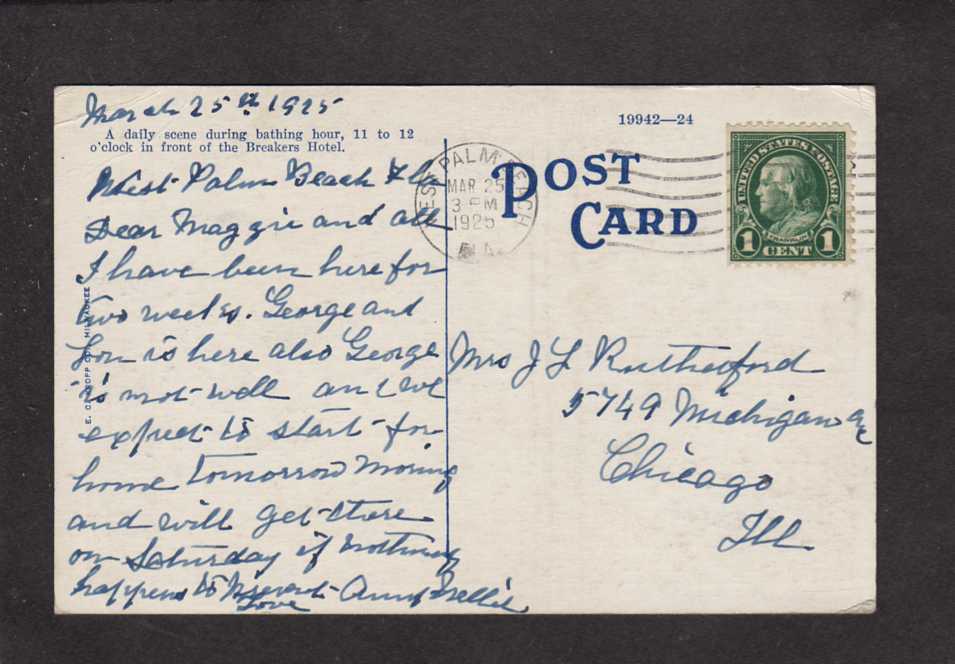 March 25th 1925
A daily scene during bathing hour, 11 to 12
o'clock in front of the Breakers Hotel.
West Palm Beach Fla
Dear Maggie and all
I have been here for
two weeks. George and
is here also George
is not well and we
expect to start for
home tomorrow moring
and will get there
on Saturday if nothing
happens to prevent Aunt Nellie
Love
E. C. KROPP CO. MILWAUKEE
19942—24
POST
CARD
WEST PALM BEACH
MAR 25
3 PM
1925
FLA.
UNITED STATES POSTAGE
FRANKLIN
1 CENT 1
Mrs J L Rutherford
5749 Michigan av
Chicago
Ill